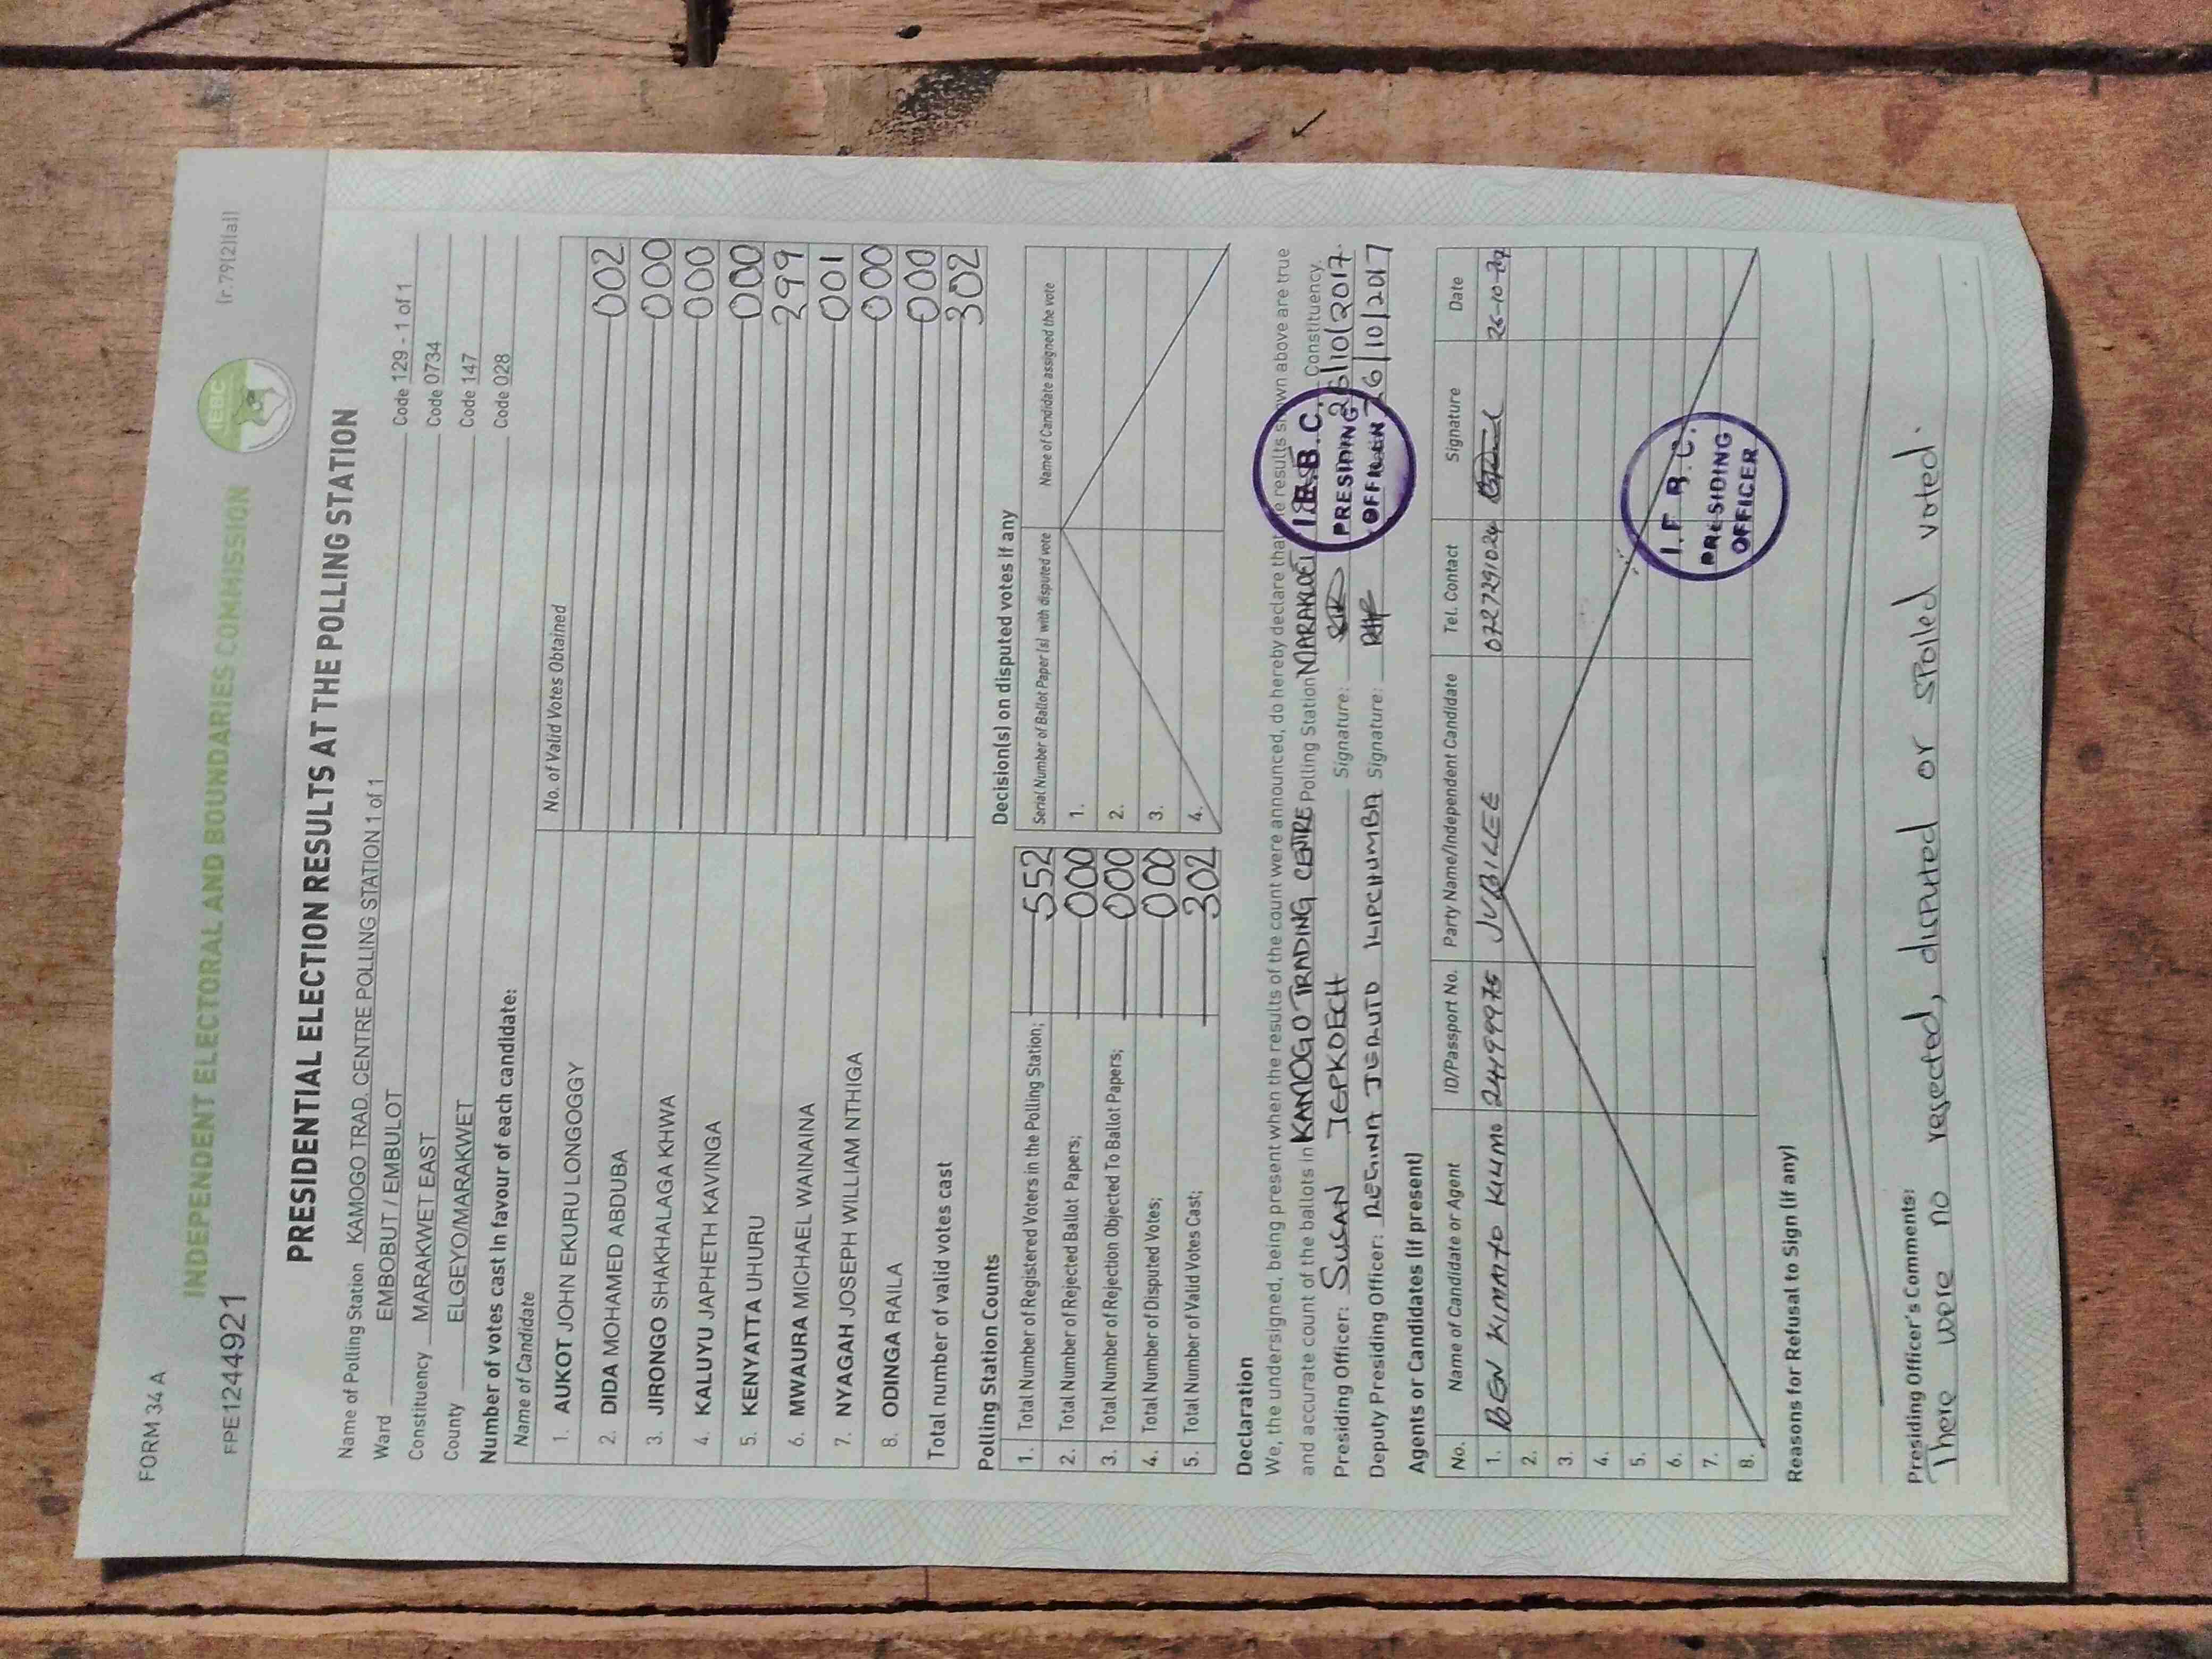 FORM 34 A
FPE1244921
INDEPENDENT ELECTORAL AND BOUNDARIES COMMISSION
IEBC
(r.79(2)(a))
PRESIDENTIAL ELECTION RESULTS AT THE POLLING STATION
Name of Polling Station KAMOGO TRAD. CENTRE POLLING STATION 1 of 1 Code 129 - 1 of 1
Ward EMBOBUT / EMBULOT Code 0734
Constituency MARAKWET EAST Code 147
County ELGEYO/MARAKWET Code 028
Number of votes cast in favour of each candidate:
Name of Candidate No. of Valid Votes Obtained
1. AUKOT JOHN EKURU LONGOGGY 002
2. DIDA MOHAMED ABDUBA 000
3. JIRONGO SHAKHALAGA KHWA 000
4. KALUYU JAPHETH KAVINGA 000
5. KENYATTA UHURU 299
6. MWAURA MICHAEL WAINAINA 001
7. NYAGAH JOSEPH WILLIAM NTHIGA 000
8. ODINGA RAILA 000
Total number of valid votes cast 302
Polling Station Counts
1. Total Number of Registered Voters in the Polling Station; 552
2. Total Number of Rejected Ballot Papers; 000
3. Total Number of Rejection Objected To Ballot Papers; 000
4. Total Number of Disputed Votes; 000
5. Total Number of Valid Votes Cast; 302
Decision(s) on disputed votes if any
Serial Number of Ballot Paper (s) with disputed vote Name of Candidate assigned the vote
1.
2.
3.
4.
Declaration
We, the undersigned, being present when the results of the count were announced, do hereby declare that the results shown above are true
and accurate count of the ballots in KAMOGO TRADING CENTRE Polling Station Constituency.
Presiding Officer: SUSAN JEPKOECH Signature: 26/10/2017.
Deputy Presiding Officer: REGINA JERUTO KIPCHUMBA Signature: 26/10/2017
I.E.B.C.
PRESIDING
OFFICER
Agents or Candidates (if present)
No. Name of Candidate or Agent ID/Passport No. Party Name/Independent Candidate Tel. Contact Signature Date
1. BEN KIMMTO 24499975 JUBILEE 0727291024
2.
3.
4.
5.
6.
7.
8.
I.E.B.C.
PRESIDING
OFFICER
Reasons for Refusal to Sign (if any)
Presiding Officer's Comments:
There were no rejected, disputed or spoiled voted.